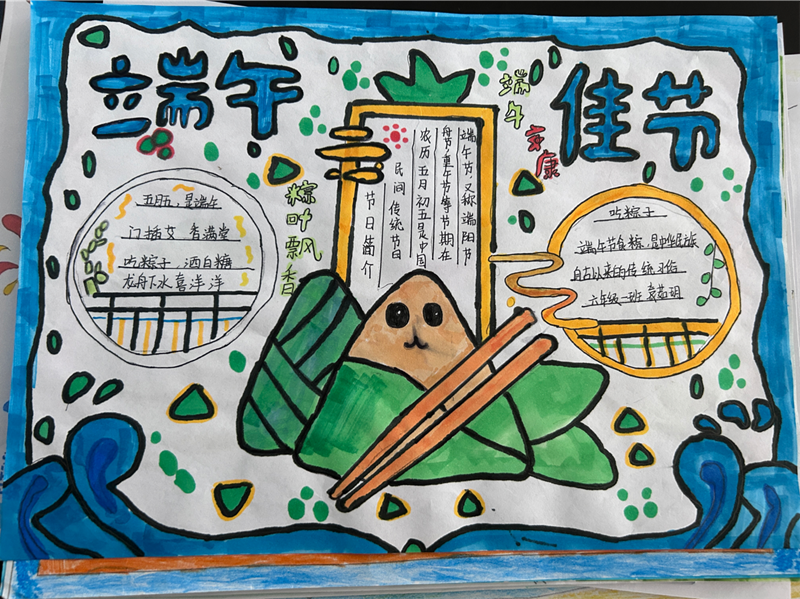 端午
佳节
端午
安康
粽叶飘香
五月五,是端午
门插艾 香满堂
吃粽子,洒白糖
龙舟下水喜洋洋
端午节又称端阳节
舟节、重午节等节期在
农历五月初五是中国
民间传统节日
节日简介
吃粽子
端午节食粽,是中华民族
自古以来的传统习俗
六年级一班